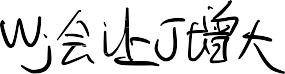 Wj会让J增大